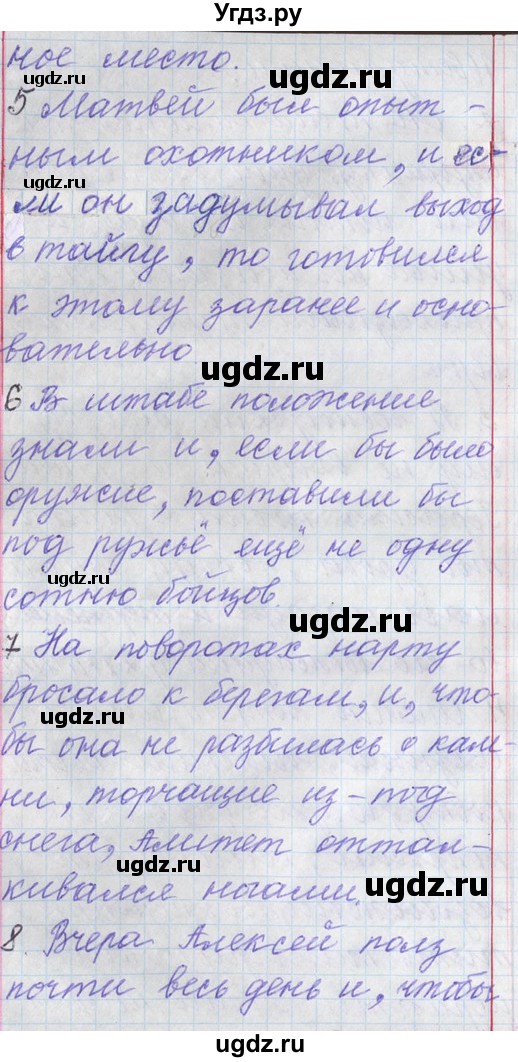 Угдз.ру
ное место.
5 Матвей был опыт-
ным охотником, и ес-
ли он задумывал выход
в тайгу, то готовился
к этому заранее и осно-
вательно
ugdz.ru
ugdz.ru
6 В штабе положение
знали и, если бы было
оружие, поставили бы
под ружьё ещё не одну
сотню бойцов.
ugdz.ru
ugdz.ru
7 На поворотах нарту
бросало к берегам, и, что-
бы она не разбилась о кам-
ни, торчащие из-под
снега, Амитет оттал-
кивался ногами.
ugdz.ru
ugdz.ru
8. Вчера Алексей полз
почти весь день и, чтобы
ugdz.ru
ugdz.ru
ugdz.ru
Угдз.ру